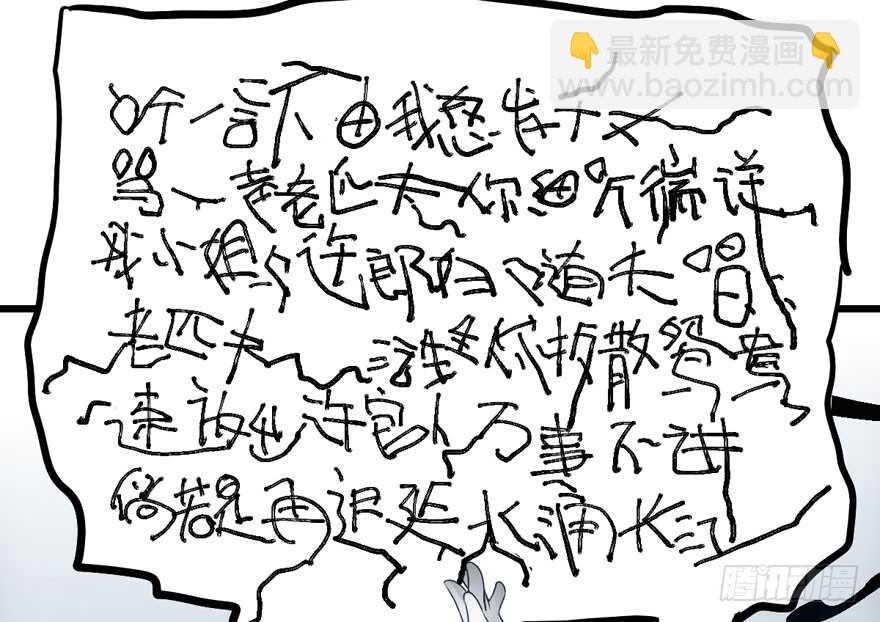 最新免费漫画
www.baozimh.com
听一言不由我怒发
骂一老爸匹夫你细听端详
我小姐与许郎归人道夫唱
老匹夫谁要你拆散鸳鸯
速放出许官人万事不讲
倘若是再迟延水涌长江
腾讯动漫